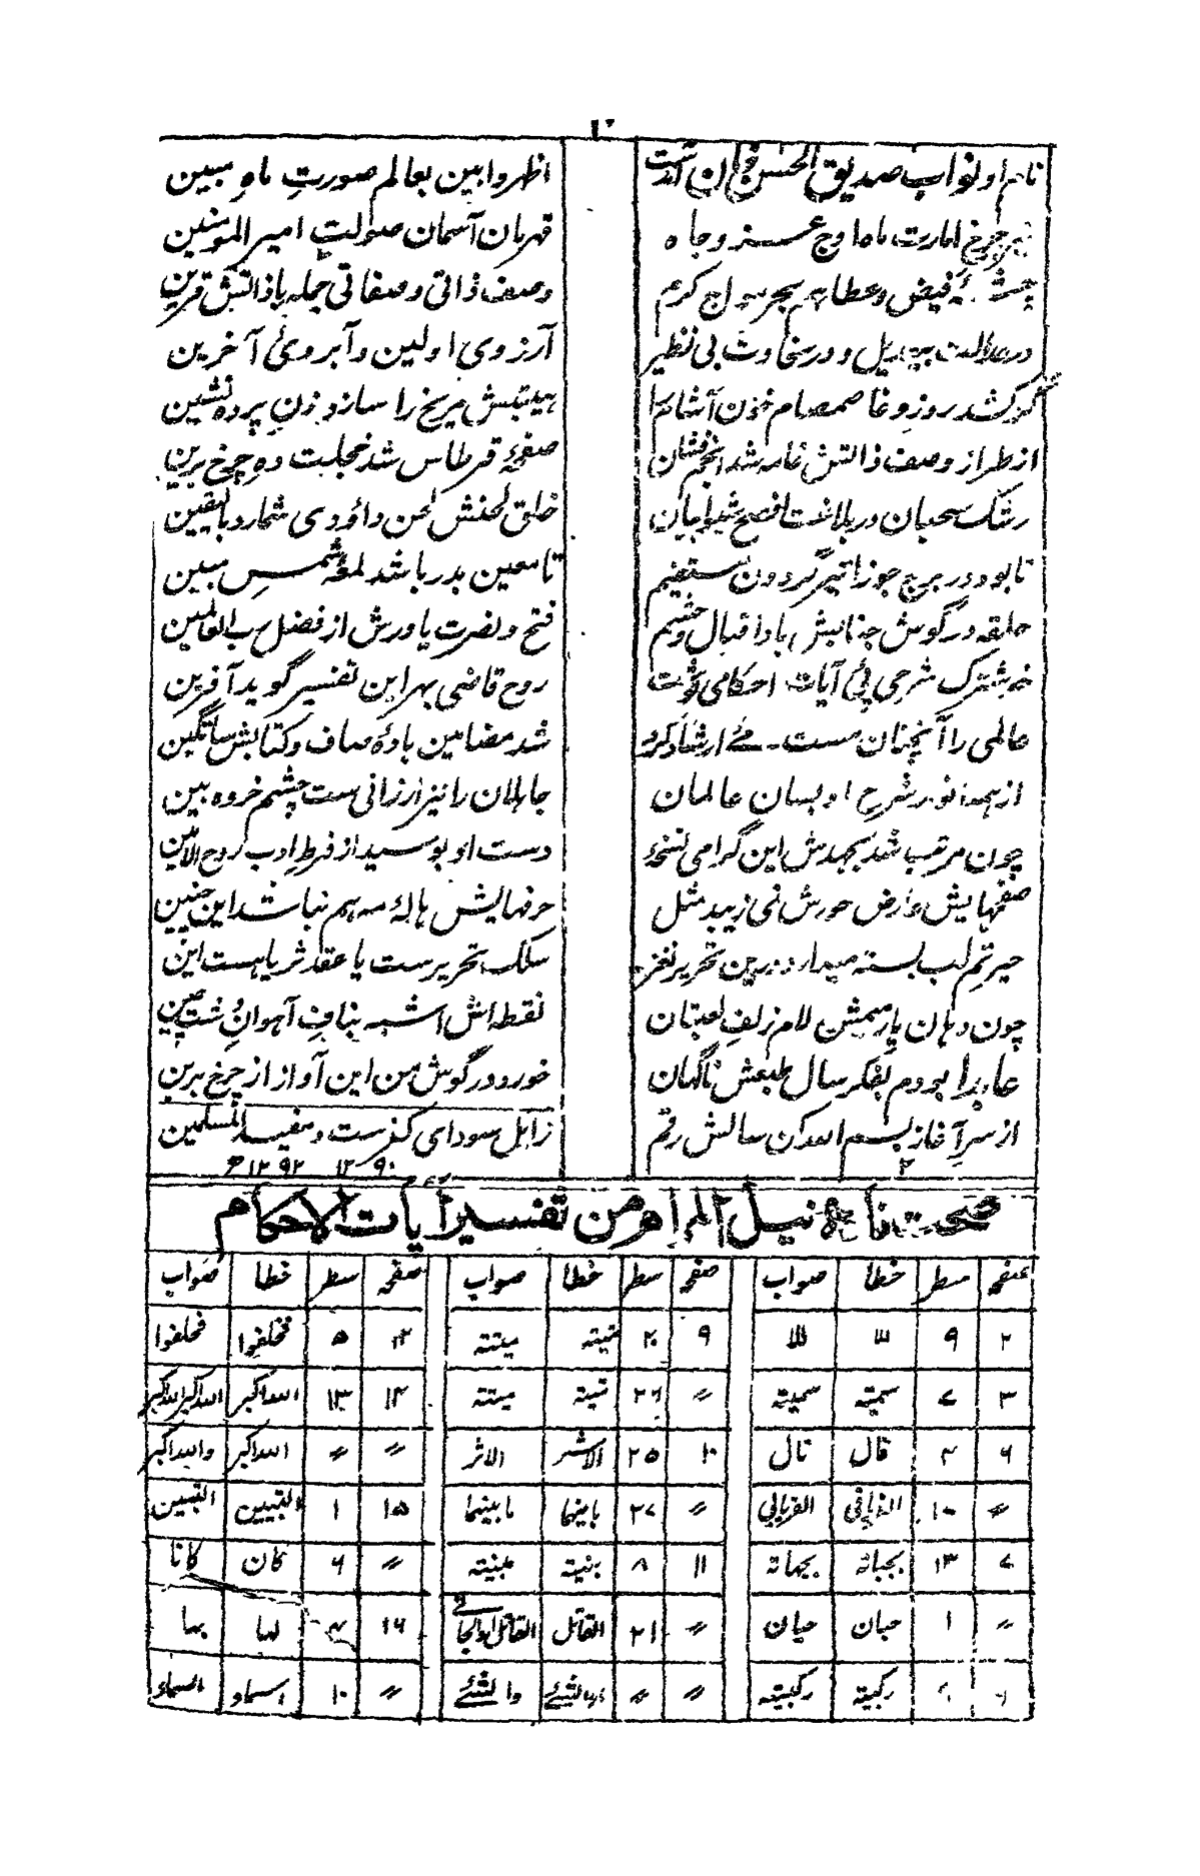 نام او نواب صدیق الحسن خان آمدست
اظهر وابین بعالم صورتِ ماهِ مبین
چرخ امارت ماه اوج عز و جاه
قهرمان آسمان صولت امیر المومنین
چشمهٔ فیض و عطا بحر مواج کرم
وصف ذاتی و صفاتی جمله با ذاتش قرین
در عدالت بی‌بدیل و در سخاوت بی نظیر
آرزوی اولین و آبروئ آخرین
گر کشد روز وغا صمصام خون آشام را
هیبتش مریخ را سازد زنِ پرده نشین
از طراز وصف ذاتش خامه شد انجم فشان
صفحهٔ قرطاس شد خجلت دهِ چرخ برین
رشک سحبان در بلاغت افصح شیوا بیان
خلق لحنش لحن داؤدی شمارد بالیقین
تا بود در برج جوزا تیر گردون مستقیم
تا معین بدر باشد لمعهٔ شمسِ مبین
حلقه در گوش جنابش باد اقبال و حشم
فتح و نصرت یاورش از فضل رب العالمین
شرحی پئ آیات احکامی نوشت
روح قاضی بهر این تفسیر گوید آفرین
عالمی را آنچنان مست مئ ارشاد کرد
شد مضامین بادهٔ صاف و کتابش ساتگین
از شرحِ او بسان عالمان
جاهلان را نیز ارزانی ست چشم خرده بین
چون مرتب شد بجهدش این گرامی نسخهٔ
دست او بوسید از فرطِ ادب روح الامین
صفحهایش عارض حورش نمی زیبد مثل
حرفهایش هالهٔ مه هم نباشد این چنین
حیرتم لب بسته میدارد درین تحریر نغز
سلک تحریرست یا عقد ثریا هست این
چون دهان یار میمش لام زلفِ لعبتان
نقطه اش اشبه بنافِ آهوانِ دشت چین
عابدا بودم بفکر سال طبعش ناگهان
خورد در گوش من این آواز از چرخ برین
از سرِ آغاز بسم الله کن سالش رقم
زابل سودای کفرست و مفید المسلمین
۲
۱۲۹۰
۱۲۹۲ھ
صحت نامه نیل المرام من تفسیر آیات الاحکام
صفحه سطر خطأ صواب صفحه سطر خطأ صواب صفحه سطر خطأ صواب
۲ ۹ ۹ ۲۰ میتته ۱۳ ۵ فتحلفوا فحلفوا
۳ ۷ سمیة سمیته 〃 ۲۶ میتته ۱۴ ۱۳ الله اکبر الله اکبر الله اکبر
۶ قال نال ۱۰ ۲۵ الاشر الاثر 〃 〃 الله اکبر والله اکبر
〃 ۱۰ الفریابی 〃 ۲۷ مابینهما ۱۵ ۱ النبیین
۷ ۱۳ ۱۱ ۸ 〃 ۶ کان کانا
〃 ۱ حبان حیان 〃 ۲۱ القائل القائل ابوالجا ۱۶ لها بها
رکبیة رکبیته 〃 〃 والشئ 〃 ۱۰ اسماء السماء